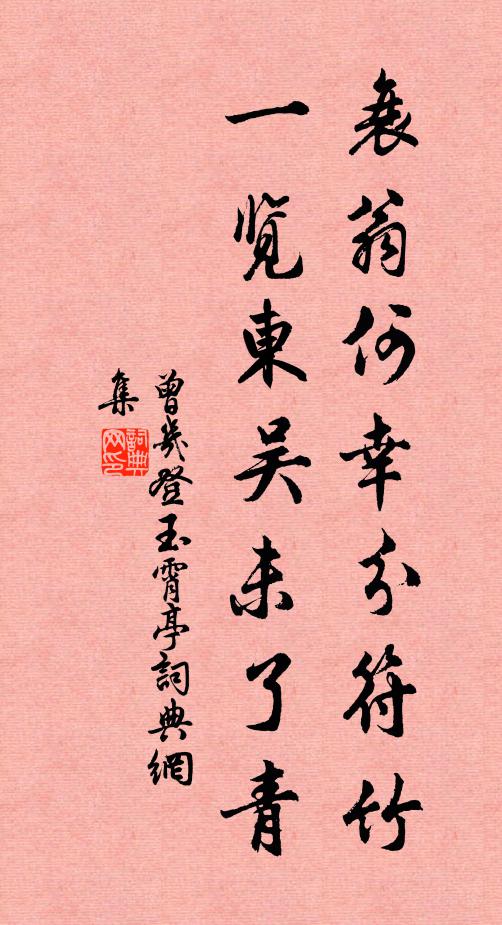 衰翁何幸分符竹
一覧東吴未了青
曾幾登玉霄亭詞典網
集
詞典網印